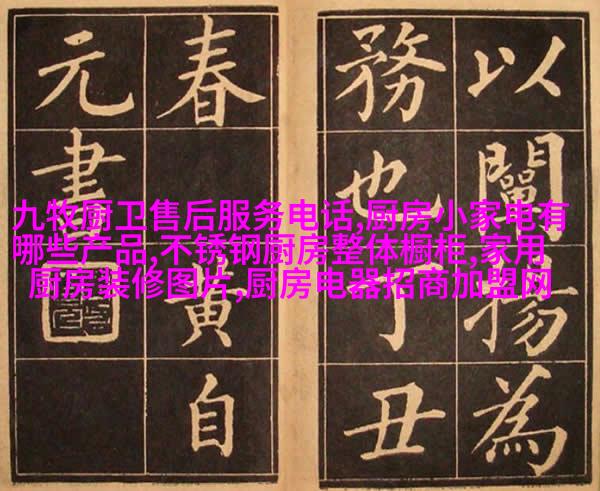 以闡揚為
務也丁丑
春黃自
元書
九牧厨卫售后服务电话,厨房小家电有
哪些产品,不锈钢厨房整体橱柜,家用
厨房装修图片,厨房电器招商加盟网